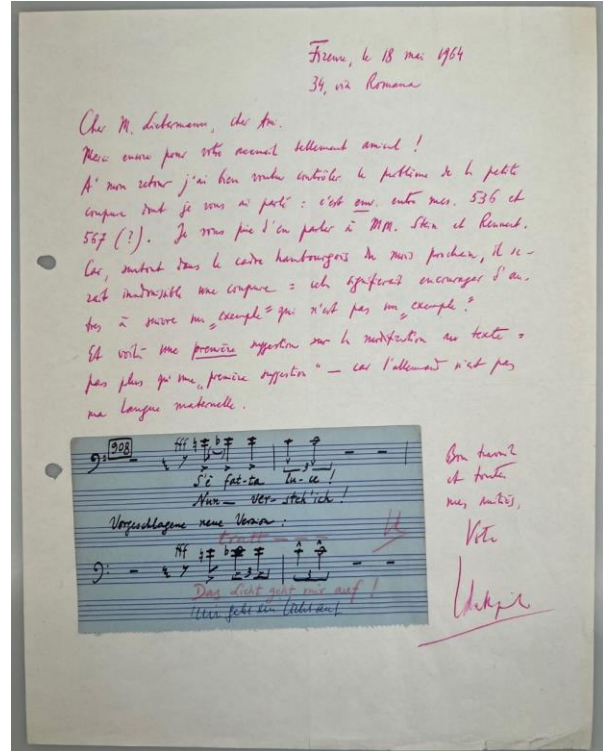 Firenze, le 18 mai 1964
34, via Romana
Cher M. Liebermann, cher Ami.
Merci encore pour votre accueil tellement amical !
A' mon retour j'ai bien voulu contrôler le problème de la petite
coupure dont je vous ai parlé : c'est env. entre mes. 536 et
567 (?). Je vous prie d'en parler à MM. Stein et Rennert.
Car, surtout dans le cadre hambourgeois du mois prochain, il se-
rait inadmissible une coupure = cela signifierait encourager d'au-
tres à suivre un „exemple" qui n'est pas un „exemple".
Et voilà une première suggestion sur la modification au texte =
pas plus qu'une „première suggestion" — car l'allemand n'est pas
ma langue maternelle.
908 fff
S'è fat-ta lu-ce !
Nun ver-steh' ich !
Vorgeschlagene neue Version :
fff
Das Licht geht mir auf !
Mir geht ein Licht auf
Bon travail
et toutes
mes amitiés,
Votre